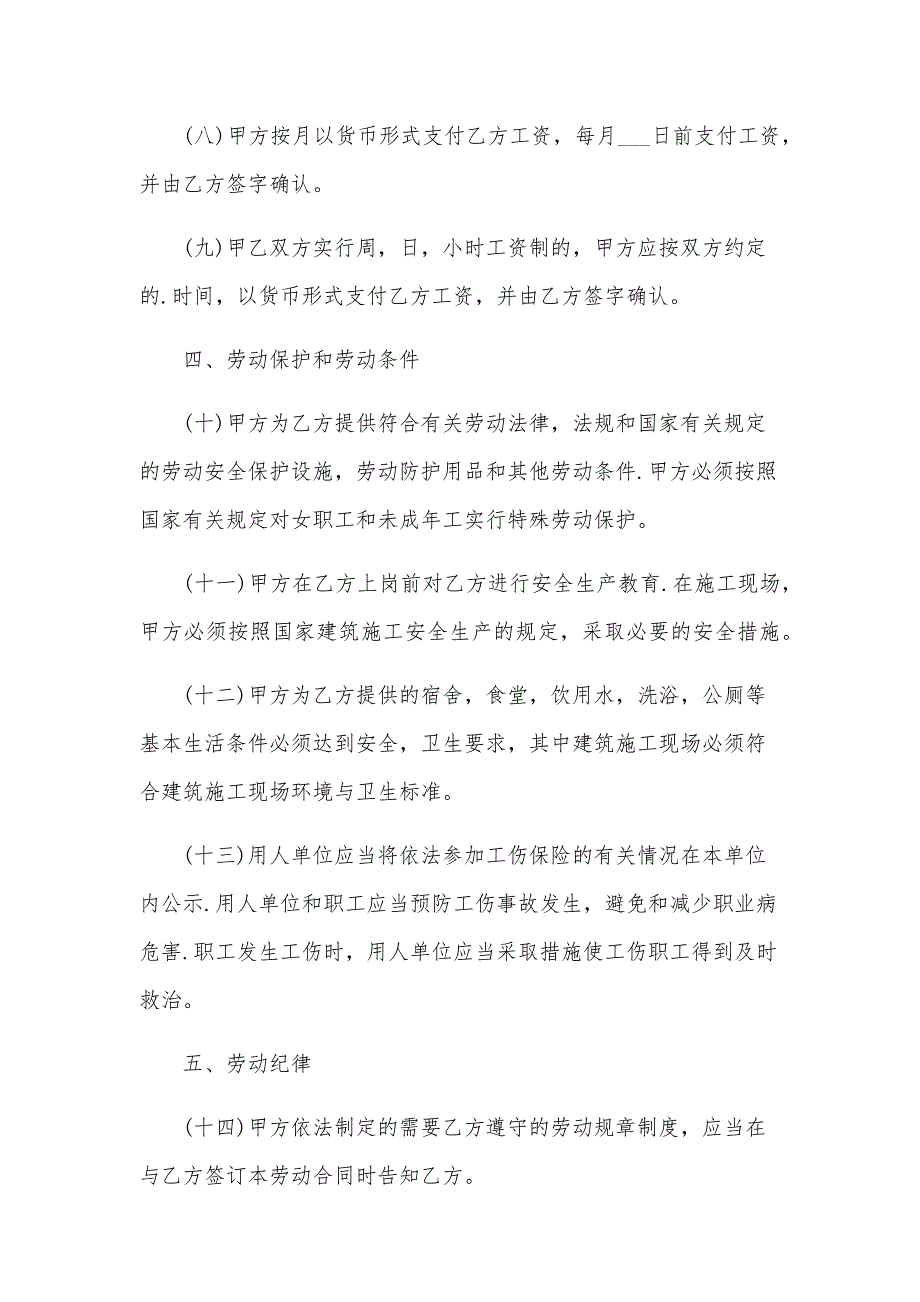 (八)甲方按月以货币形式支付乙方工资，每月___日前支付工资，
并由乙方签字确认。
(九)甲乙双方实行周，日，小时工资制的，甲方应按双方约定
的.时间，以货币形式支付乙方工资，并由乙方签字确认。
四、劳动保护和劳动条件
(十)甲方为乙方提供符合有关劳动法律，法规和国家有关规定
的劳动安全保护设施，劳动防护用品和其他劳动条件.甲方必须按照
国家有关规定对女职工和未成年工实行特殊劳动保护。
(十一)甲方在乙方上岗前对乙方进行安全生产教育.在施工现场，
甲方必须按照国家建筑施工安全生产的规定，采取必要的安全措施。
(十二)甲方为乙方提供的宿舍，食堂，饮用水，洗浴，公厕等
基本生活条件必须达到安全，卫生要求，其中建筑施工现场必须符
合建筑施工现场环境与卫生标准。
(十三)用人单位应当将依法参加工伤保险的有关情况在本单位
内公示.用人单位和职工应当预防工伤事故发生，避免和减少职业病
危害.职工发生工伤时，用人单位应当采取措施使工伤职工得到及时
救治。
五、劳动纪律
(十四)甲方依法制定的需要乙方遵守的劳动规章制度，应当在
与乙方签订本劳动合同时告知乙方。